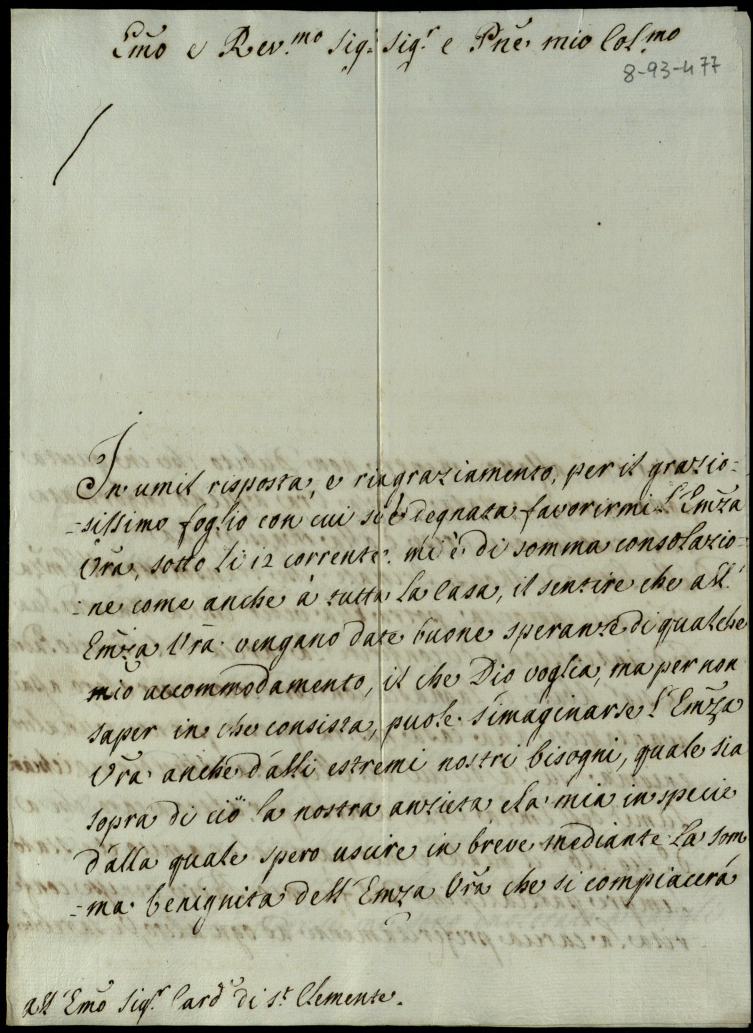 Em̃o e Rev.mo Sig.r Sig.r e Pñe mio Col.mo
8-93-477
In umil risposta, e ringraziamento, per il grazio=
=sissimo foglio con cui si è degnata favorirmi l'Em̃za
Vr̃a, sotto li 12 corrente. mi è di somma consolazio=
=ne come anche à tutta la Casa, il sentire che all'
Em̃za Vr̃a vengano date buone speranze di qualche
mio accommodamento, il che Dio voglia, ma per non
saper in che consista, puole s'imaginarse l'Em̃za
Vr̃a anche d'alli estremi nostri bisogni, quale sia
sopra di ciò la nostra antieta e la mia in specie
d'alla quale spero uscire in breve mediante la som
=ma benignita dell'Em̃za Vr̃a che si compiacerá
all'Em̃o Sig.r Card.l di S.t Clemente.